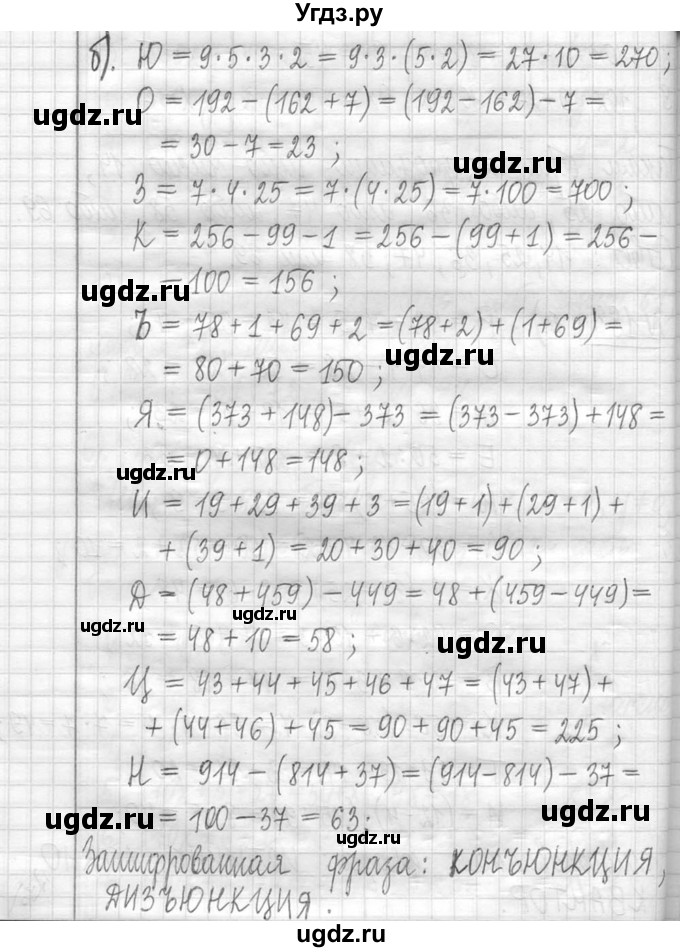 Угдз.ру
б). Ю = 9·5·3·2 = 9·3·(5·2) = 27·10 = 270;
О = 192 – (162 + 7) = (192 – 162) – 7 =
ugdz.ru
= 30 – 7 = 23 ;
ugdz.ru
З = 7·4·25 = 7·(4·25) = 7·100 = 700 ;
К = 256 – 99 – 1 = 256 – (99 + 1) = 256 –
– 100 = 156 ;
ugdz.ru
Ъ = 78 + 1 + 69 + 2 = (78 + 2) + (1 + 69) =
ugdz.ru
= 80 + 70 = 150 ;
Я = (373 + 148) – 373 = (373 – 373) + 148 =
= 0 + 148 = 148 ;
ugdz.ru
И = 19 + 29 + 39 + 3 = (19 + 1) + (29 + 1) +
+ (39 + 1) = 20 + 30 + 40 = 90 ;
Д = (48 + 459) – 449 = 48 + (459 – 449) =
ugdz.ru
ugdz.ru
= 48 + 10 = 58 ;
ugdz.ru
Ц = 43 + 44 + 45 + 46 + 47 = (43 + 47) +
+ (44 + 46) + 45 = 90 + 90 + 45 = 225 ;
Н = 914 – (814 + 37) = (914 – 814) – 37 =
ugdz.ru
= 100 – 37 = 63.
ugdz.ru
ugdz.ru
Зашифрованная фраза: КОНЪЮНКЦИЯ,
ДИЗЪЮНКЦИЯ.
ugdz.ru